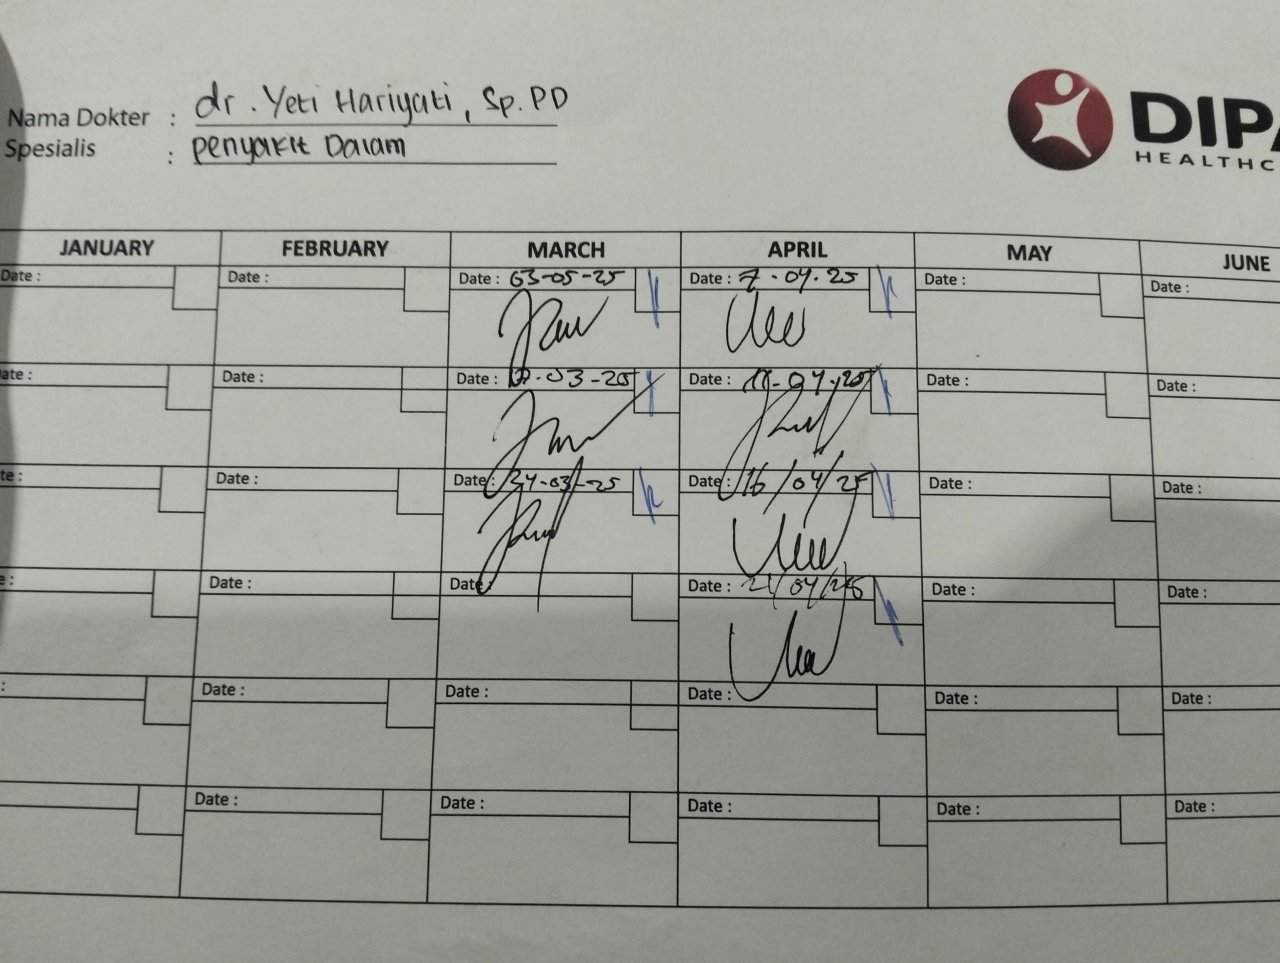 Nama Dokter : dr. Yeti Hariyati, Sp.PD
Spesialis : Penyakit Dalam
DIPA
HEALTHC
JANUARY FEBRUARY MARCH APRIL MAY JUNE
Date : Date : Date : 03-05-25 Date : 7-04-25 Date : Date :
ate : Date : Date : -03-25 Date : 11-04-25 Date : Date :
te : Date : Date : 24-03-25 Date : 16/04/25 Date : Date :
e : Date : Date : Date : 21/04/25 Date : Date :
: Date : Date : Date : Date : Date :
Date : Date : Date : Date : Date :